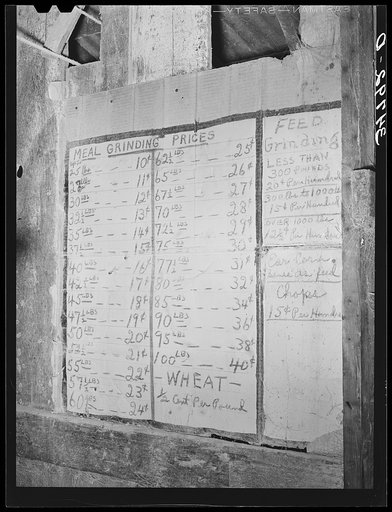 MEAL GRINDING PRICES
25 LBS 10¢
28 LBS 11¢
30 LBS 12¢
32½ LBS 13¢
35 LBS 14¢
37½ LBS 15¢
40 LBS 16¢
42½ LBS 17¢
45 LBS 18¢
47½ LBS 19¢
50 LBS 20¢
52½ LBS 21¢
55 LBS 22¢
57½ LBS 23¢
60 LBS 24¢
62½ LBS 25¢
65 LBS 26¢
67½ LBS 27¢
70 LBS 28¢
72½ LBS 29¢
75 LBS 30¢
77½ LBS 31¢
80 LBS 32¢
85 LBS 34¢
90 LBS 36¢
95 LBS 38¢
100 LBS 40¢
WHEAT
½ Cent Per Pound
FEED
Grinding
LESS THAN
300 POUNDS
20¢ Per Hundred
300 lbs to 1000 lbs
15¢ Per Hundred
OVER 1000 lbs
12½¢ Per Hundred
Car Corn
same as feed
Chops
15¢ Per Hundred
SAFETY
34792-D